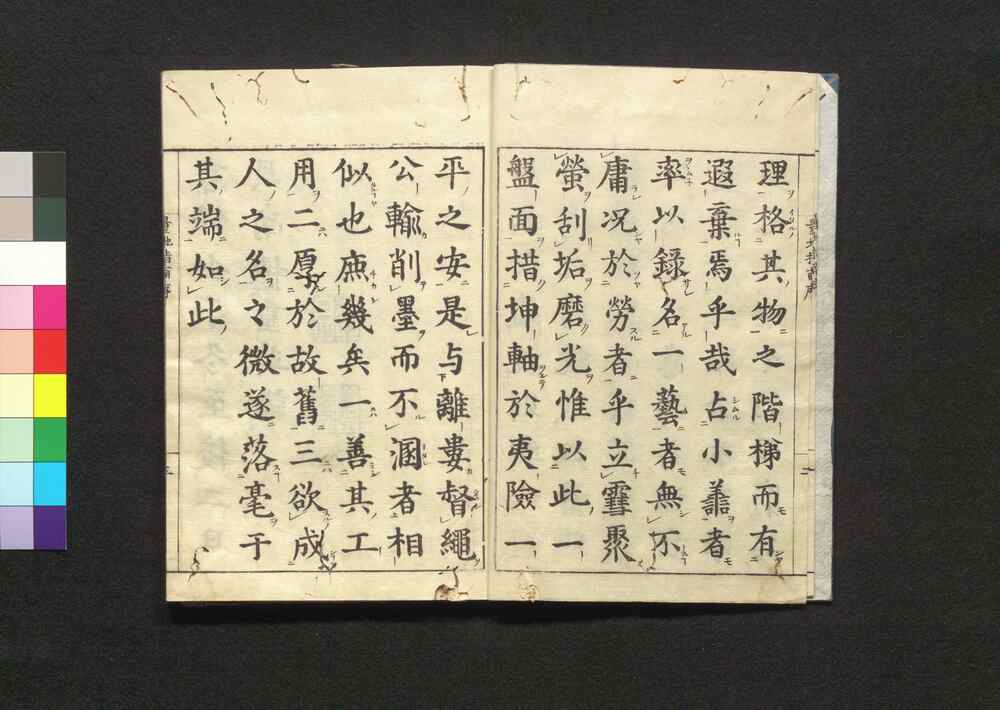 理格其物之階梯而有
遐棄焉乎哉占小善者
率以錄名一藝者無不
庸况於勞者乎立雪聚
螢刮垢磨光惟以此一
盤面措坤軸於夷險一
平之安是与離婁督繩
公輸削墨而不溷者相
似也庶幾矣一善其工
用二厚於故舊三欲成
人之名々微遂落毫于
其端如此